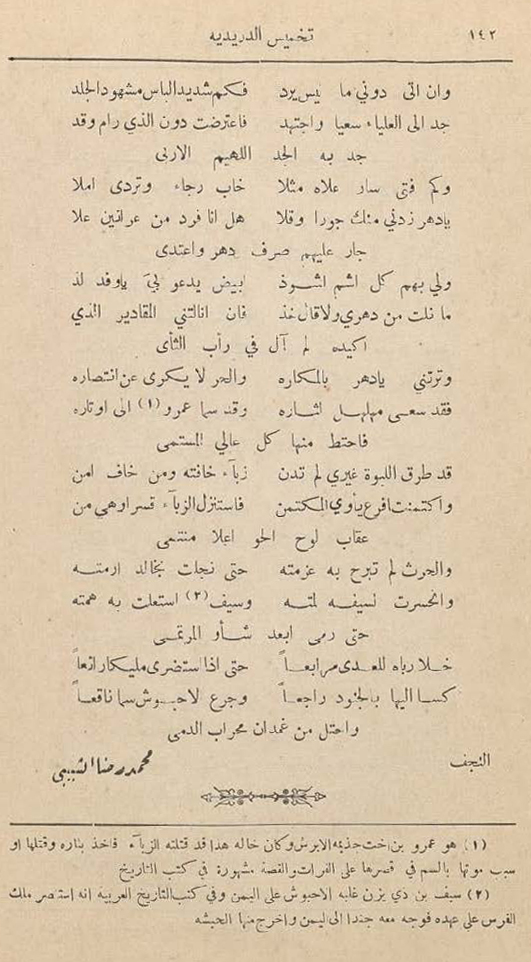 ١٤٢ تخميس الدريدية
وان اتى دوني ما ليس يرد فكم شديد الباس مشهود الجلد
جد الى العلياء سعيا واجتهد فاعترضت دون الذي رام وقد
جد به الجد اللهيم الاربى
وكم فتى سار علاه مثلا خاب رجاء وتردى املا
يادهر زدني منك جورا وقلا هل انا فرد من عرانين علا
جار عليهم صرف دهر واعتدى
ولي بهم كل اشم اشوذ ابيض يدعو لي ياوفد لذ
ما نلت من دهري ولا قال خذ فان انالتني المقادير الذي
اكيده لم آل في رأب الثأى
وترتني يادهر بالمكاره والحر لا يكرى عن انتصاره
فقد سعى مهلهل لثاره وقد سما عمرو (١) الى اوتاره
فاحتط منها كل عالي المستمى
قد طرق اللبوة غيري لم تدن زبآء خافته ومن خاف امن
واكتمنت افرع يأوي المكتمن فاستنزل الزبآء قسرا وهي من
عقاب لوح الجو اعلا منتمى
والحرث لم تبرح به عزمته حتى نجلت بخالد ازمته
وانحسرت لسيفه لمته وسيف (٢) استعلت به همته
حتى رمى ابعد شأو المرتمى
خلا رباه للعدى مرابعاً حتى اذا استضرى مليكا رائعاً
كسا اليها بالجنود راجعاً وجرع الاحبوش سما ناقعاً
واحتل من غمدان محراب الدمى
النجف محمد رضا الشبيبي
(١) هو عمرو بن اخت جذيمه الابرش وكان خاله هدا قد قتلته الزبآء فاخذ بثاره وقتلها او
سبب موتها بالسم في قصرها على الفرات والقصة مشهورة في كتب التاريخ
(٢) سيف بن ذي يزن غلبه الاحبوش على اليمن وفي كتب التاريخ العربية انه استنصر ملك
الفرس على عهده فوجه معه جندا الى ليمن واخرج منها الحبشه